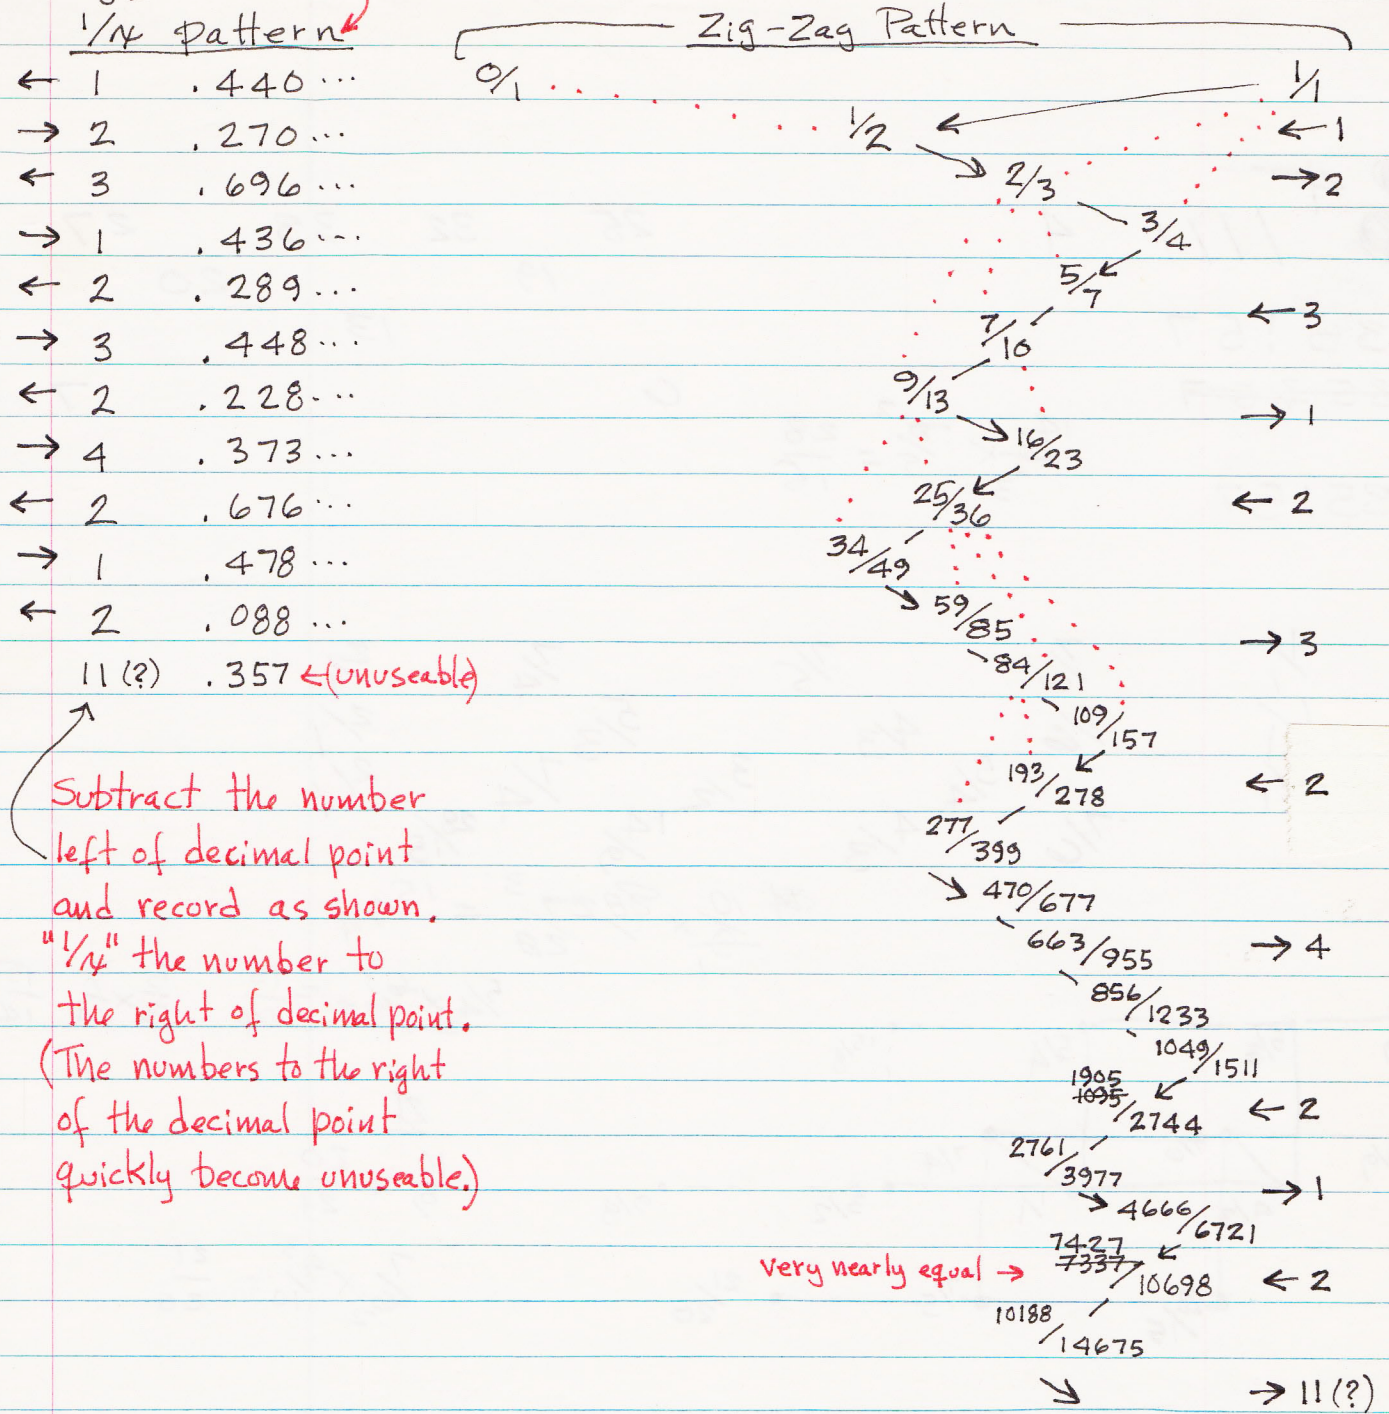 1/x pattern
Zig-Zag Pattern
← 1 .440...
→ 2 .270...
← 3 .696...
→ 1 .436...
← 2 .289...
→ 3 .448...
← 2 .228...
→ 4 .373...
← 2 .676...
→ 1 .478...
← 2 .088...
11(?) .357 ←(unuseable)
Subtract the number
left of decimal point
and record as shown.
"1/x" the number to
the right of decimal point.
(The numbers to the right
of the decimal point
quickly become unuseable.)
0/1 1/1
1/2 ← 1
2/3 → 2
3/4
5/7
7/10 ← 3
9/13
16/23 → 1
25/36 ← 2
34/49
59/85
84/121 → 3
109/157
193/278 ← 2
277/399
470/677
663/955 → 4
856/1233
1049/1511
1905
1095/2744 ← 2
2761/3977
4666/6721 → 1
7427
very nearly equal → 7337/10698 ← 2
10188/14675
→ 11(?)